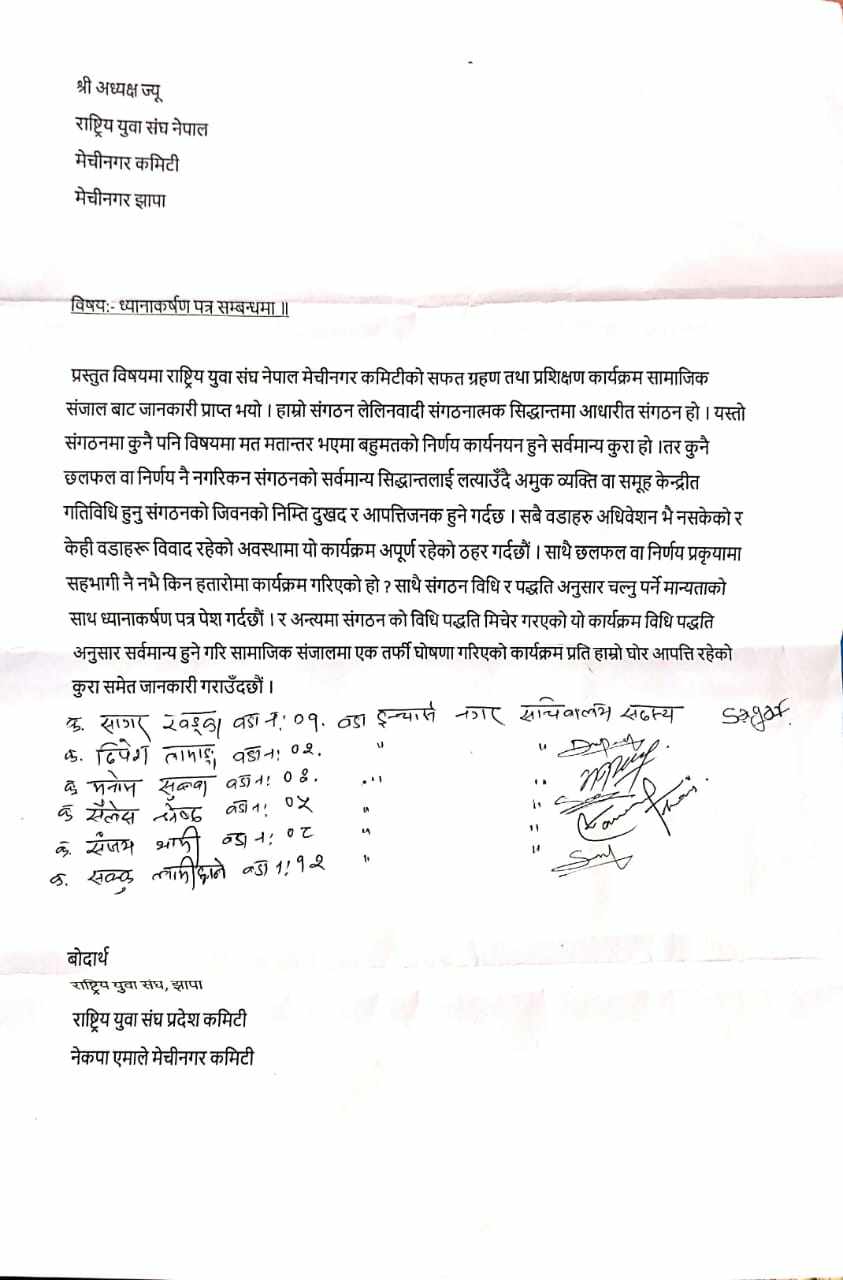 श्री अध्यक्ष ज्यू
राष्ट्रिय युवा संघ नेपाल
मेचीनगर कमिटी
मेचीनगर झापा
विषय:- ध्यानाकर्षण पत्र सम्बन्धमा ॥
प्रस्तुत विषयमा राष्ट्रिय युवा संघ नेपाल मेचीनगर कमिटीको सफत ग्रहण तथा प्रशिक्षण कार्यक्रम सामाजिक
संजाल बाट जानकारी प्राप्त भयो । हाम्रो संगठन लेलिनवादी संगठनात्मक सिद्धान्तमा आधारीत संगठन हो । यस्तो
संगठनमा कुनै पनि विषयमा मत मतान्तर भएमा बहुमतको निर्णय कार्यनयन हुने सर्वमान्य कुरा हो ।तर कुनै
छलफल वा निर्णय नै नगरिकन संगठनको सर्वमान्य सिद्धान्तलाई लत्याउँदै अमुक व्यक्ति वा समूह केन्द्रीत
गतिविधि हुनु संगठनको जिवनको निम्ति दुखद र आपत्तिजनक हुने गर्दछ । सबै वडाहरु अधिवेशन भै नसकेको र
केही वडाहरू विवाद रहेको अवस्थामा यो कार्यक्रम अपूर्ण रहेको ठहर गर्दछौं । साथै छलफल वा निर्णय प्रकृयामा
सहभागी नै नभै किन हतारोमा कार्यक्रम गरिएको हो ? साथै संगठन विधि र पद्धति अनुसार चल्नु पर्ने मान्यताको
साथ ध्यानाकर्षण पत्र पेश गर्दछौं । र अन्त्यमा संगठन को विधि पद्धति मिचेर गरएको यो कार्यक्रम विधि पद्धति
अनुसार सर्वमान्य हुने गरि सामाजिक संजालमा एक तर्फी घोषणा गरिएको कार्यक्रम प्रति हाम्रो घोर आपत्ति रहेको
कुरा समेत जानकारी गराउँदछौं ।
क. सागर खड्का वडा नं: ०१. वडा इन्चार्ज नगर सचिवालय सदस्य Sagar.
क. दिपेश तामाङ वडा न: ०२. " "
क मनोज सुब्बा वडा न: ०४. " "
क सैलेस श्रेष्ठ वडा न: ०५ " "
क. संजय थापा वडा न: ०८ " "
क. वडा न: १२ " "
बोदार्थ
राष्ट्रिय युवा संघ, झापा
राष्ट्रिय युवा संघ प्रदेश कमिटी
नेकपा एमाले मेचीनगर कमिटी